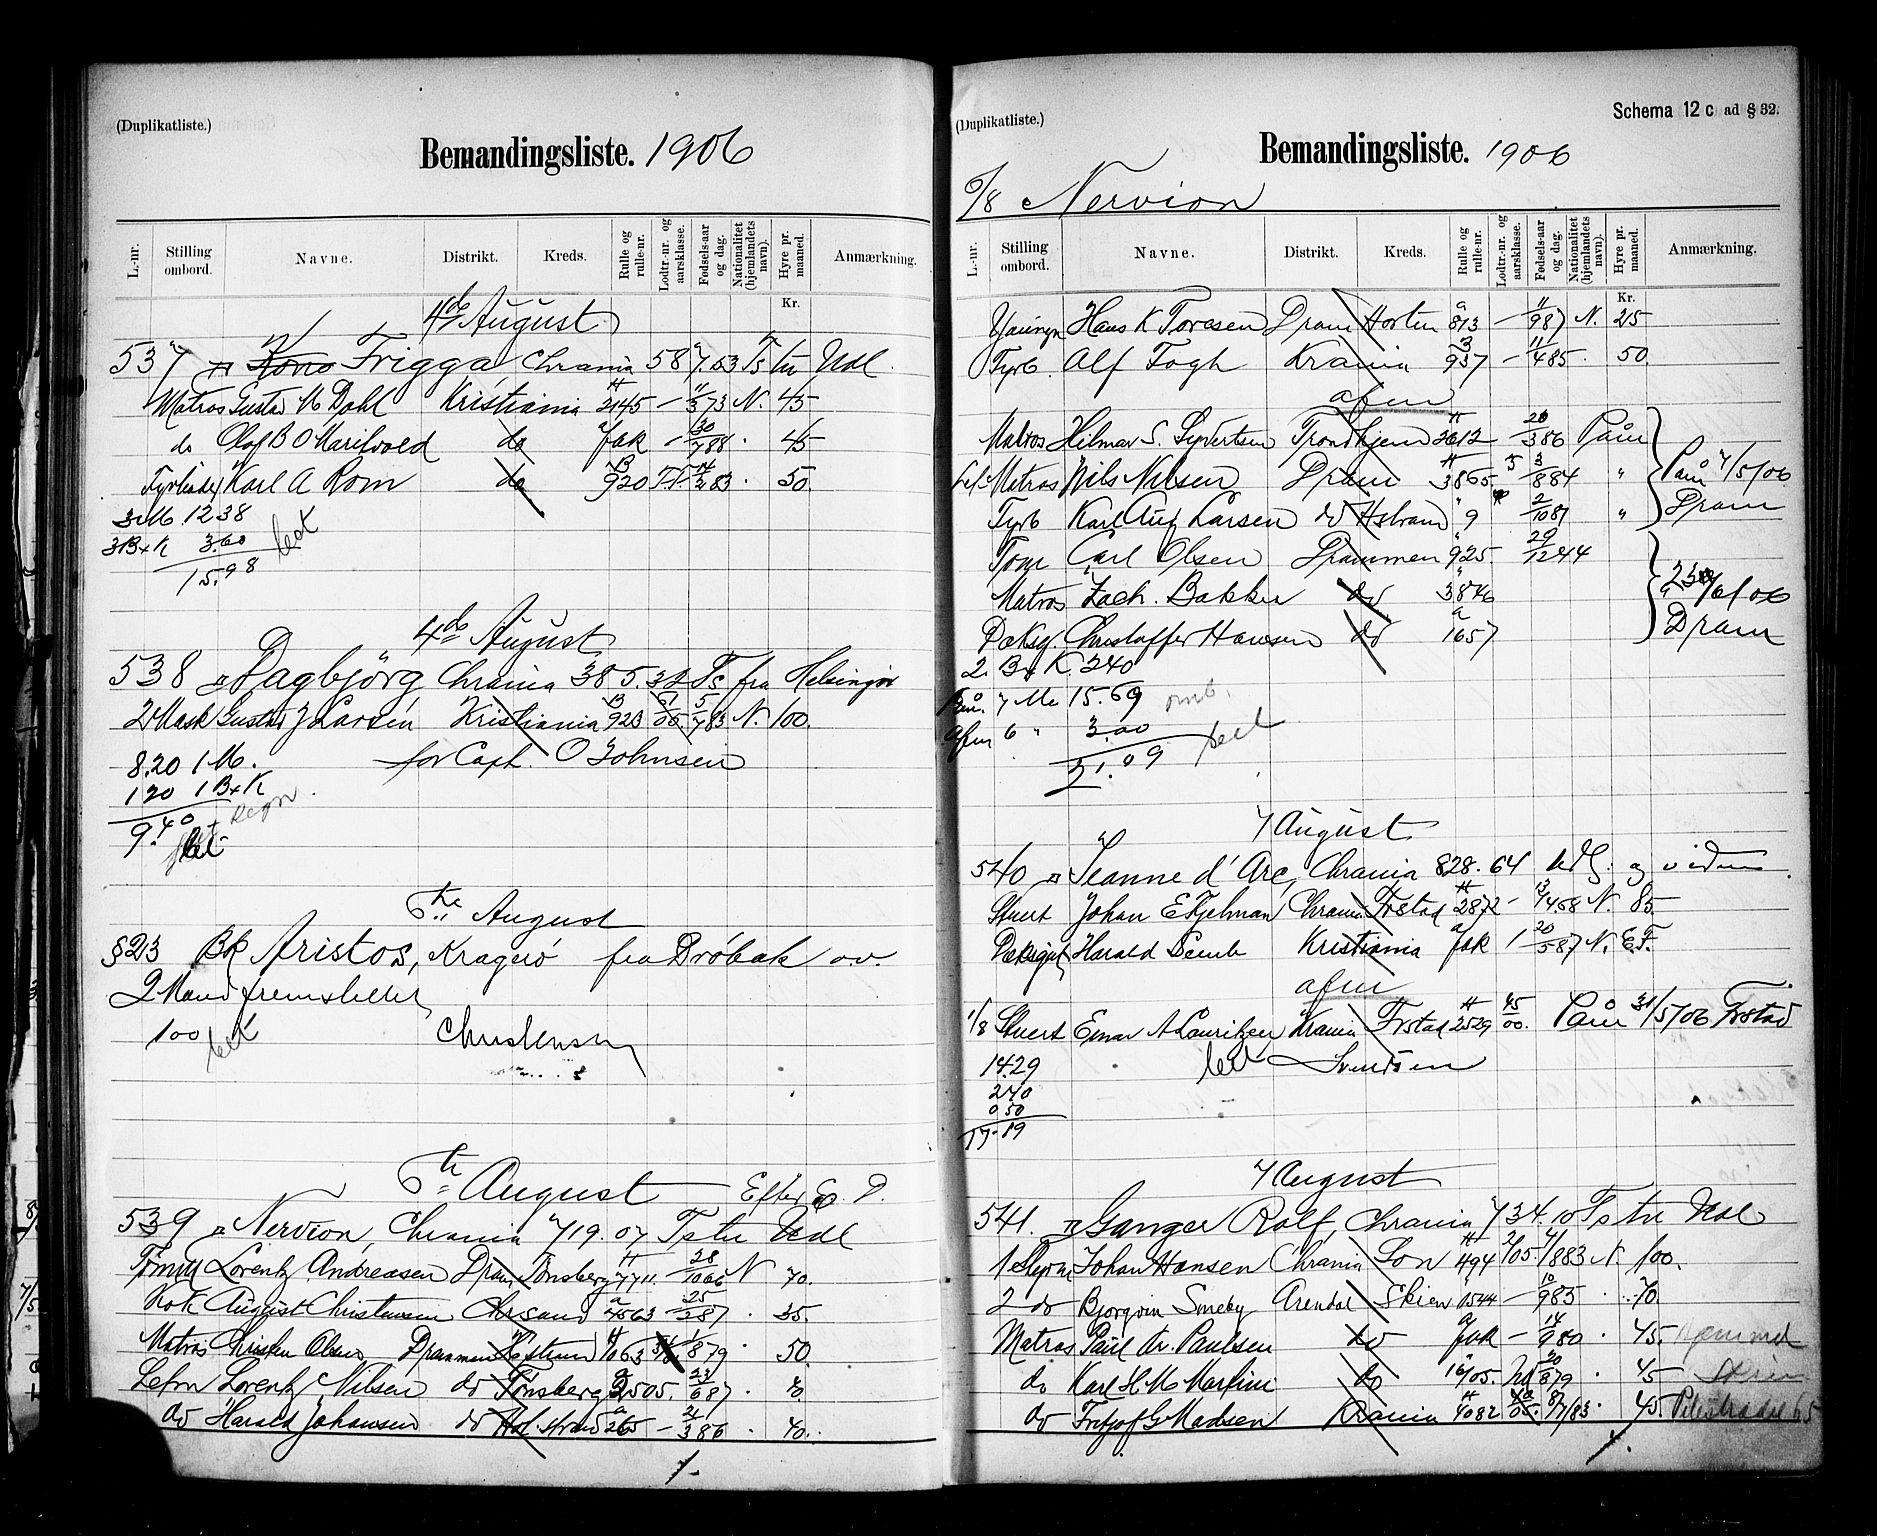 (Duplikatliste.)
Bemandingsliste. 1906
L.-nr. Stilling ombord. Navne. Distrikt. Kreds. Rulle og rulle-nr. Lodtr.-nr. og aarsklasse. Fødsels-aar og dag. Nationalitet (hjemlandets navn). Hyre pr. maaned. Anmærkning.
Kr.
4de August
537 Frigga Chrania 587.03 Ts tu Udl
Matros Gustav M Dahl Kristiania 2145 — 11/3 73 N. 45
do Olaf B O Marilvold do fak — 30/7 88 · 45
Fyrbøder Karl A Rom do 920 14/2 83 · 50
3 M. 12 38
3 B+K 3.60 bet
15.98
4de August
538 Dagbjörg Chrania 385.32 Ts fra Helsingør
2 Mask Gustav J Larsen Kristiania 923 5/7 83 N. 100.
8.20 1 M. for Capt. O Johnsen
1 20 1 B+K
9.40 Regn.
bet
6te August
§ 23 Bk Aristos, Kragerö fra Dröbak o.v.
2 Mand fremstillet
100 bet Christensen
6te August Efter E. P.
539 Nervion, Chrania 719.07 Ts tu Udl
Tømm Lorentz Andreasen Dram Tönsberg 7711 28/10 66 N 70.
Kok August Christensen Chrsand 4563 — 25/2 87 · 35.
Matros Christen Olsen Drammen Hstrand 1063 1/8 79 · 50.
Letm Lorentz Nilsen do Tönsberg 2505. 6 87 · 40.
do Harald Johansen do Holmstrand 265 — 21/3 86 · 40.
(Duplikatliste.)
Schema 12 c ad § 32.
Bemandingsliste. 1906
6/8 Nervion
L.-nr. Stilling ombord. Navne. Distrikt. Kreds. Rulle og rulle-nr. Lodtr.-nr. og aarsklasse. Fødsels-aar og dag. Nationalitet (hjemlandets navn). Hyre pr. maaned. Anmærkning.
Kr.
Youngm Hans K Toresen Dram Horten 813 — 11/9 87 N. 25
Fyrb Alf Fogh Krania 937 — 11/4 85 · 50.
afm
Matros Hilmar S. Syvertsen Trondhjem 2612 — 20/3 86 Påm
Matros Nils Nilsen Dram 3865. 3/8 84 " Påm 7/5/06
Fyrb Karl Aug Larsen do Hstrand " 9 2/10 87 " Dram
Tøm Carl Olsen Drammen 925. 29/12 44
Matros Zach. Bakken do 3846 23/6/06
Dæksg. Christoffer Hansen do 1657 Dram
2. B+K. 2 40
Påm. 7 M. 15.69
Afm 6 " 3.00 bet
21.09
7 August
540 Jeanne d' Arc, Chrania 828.64 Udl. og viden
Stuert Johan E Fjelman Chrania Frstad 2872 — 13/4 58 N. 85.
Dæksgut Harald Semb Kristiania fak 1 20/5 87 N. E.F.
afm
1/8 Stuert Einar A Lauritzen Krania Frstad 2529 45/00. Påm 31/5/06 Frstad
14.29 bet Svendsen
2 40
0 50
17.19
7 August
541. Ganger Rolf, Chrania 734.10 Ts tu Udl
1 Styrm Johan Hansen Chrania Son 494 2/05. 4/1 883 N. 100.
2 do Bjorgvin Smeby Arendal Skien 1544 — 10/9 85 · 70.
Matros Paul Kr. Paulsen do fak — 14/9 80 · 45.
do Karl H M Martini do 16/05. 20/8 79 · 45
do Fritjof G Madsen Krania 4082 05. 8/7/83. 45. Pilestrædet 65